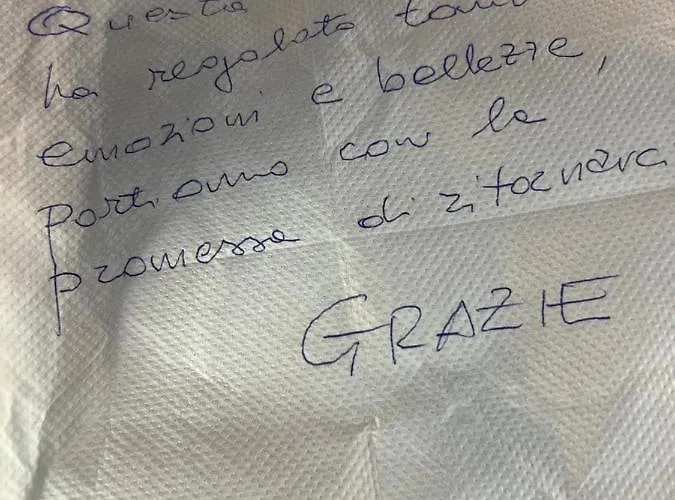 Questa
ha regalato tan
emozioni e bellezze,
Portiamo con la
promessa di ritornarci
GRAZIE